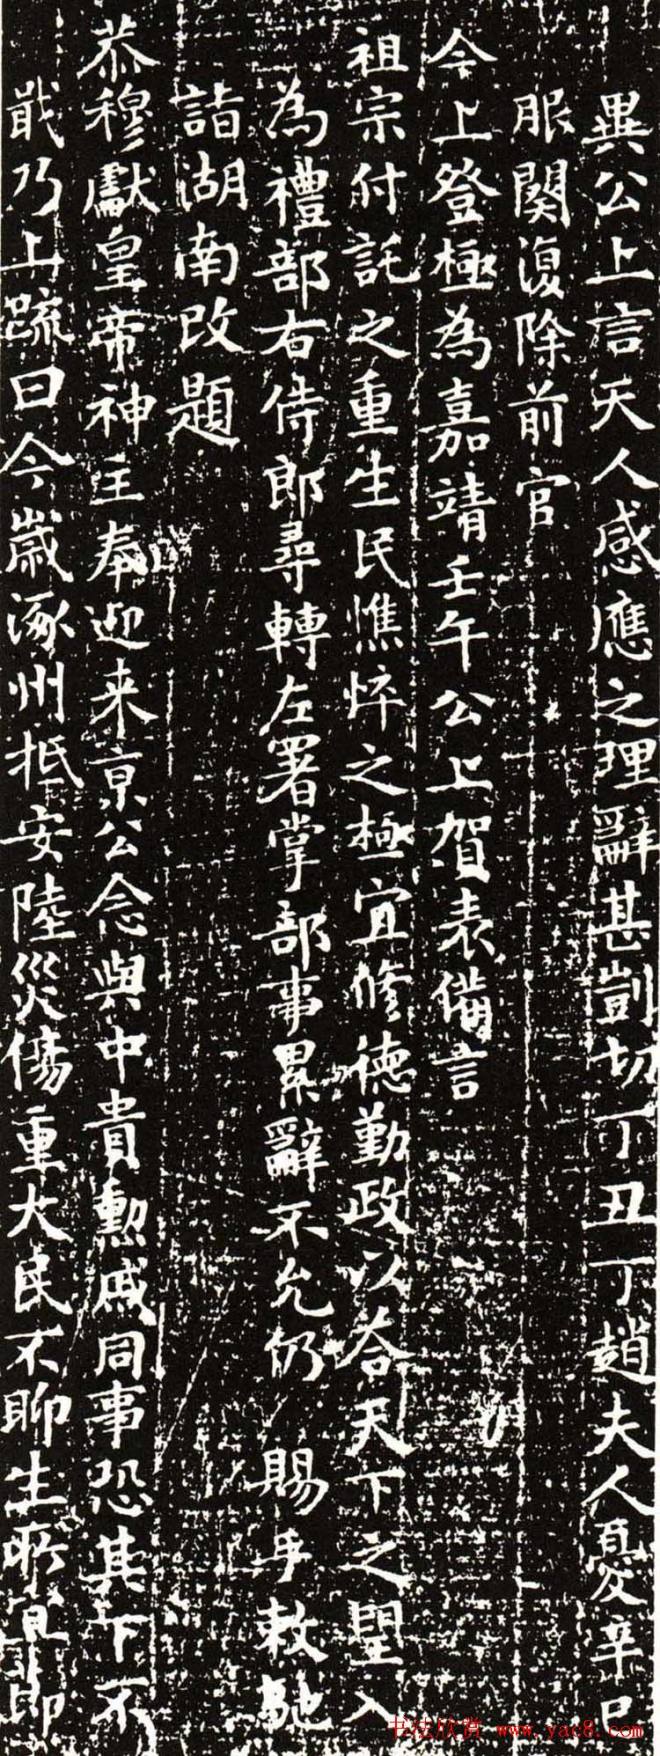 異公上言天人感應之理辭甚剴切丁丑丁趙夫人憂辛巳
服闋復除前官
今上登極為嘉靖壬午公上賀表備言
祖宗付託之重生民憔悴之極宜修德勤政以荅天下之望入
為禮部右侍郎尋轉左署掌部事累辭不允仍賜手敕馳
詣湖南改題
恭穆獻皇帝神主奉迎来京公念與中貴勲戚同事恐其下不
戢乃上疏曰今歲涿州抵安陸災傷重大民不聊生所宜節
书法欣赏 www.yac8.com